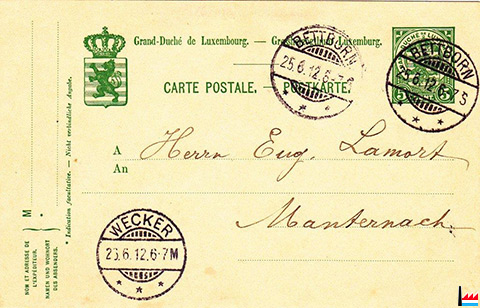 Grand-Duché de Luxembourg. — Grossherzogtum Luxemburg.
CARTE POSTALE. — POSTKARTE.
BETTBORN
25.6.12.6-7S
BETTBORN
25.6.12.6-7S
5
* Indication facultative. — Nicht verbindliche Angabe.
M
NOM ET ADRESSE DE
L'EXPÉDITEUR.
NAMEN UND WOHNORT
DES ABSENDERS.
A
An
Herrn Eug. Lamort
Manternach.
WECKER
25.6.12.6-7M